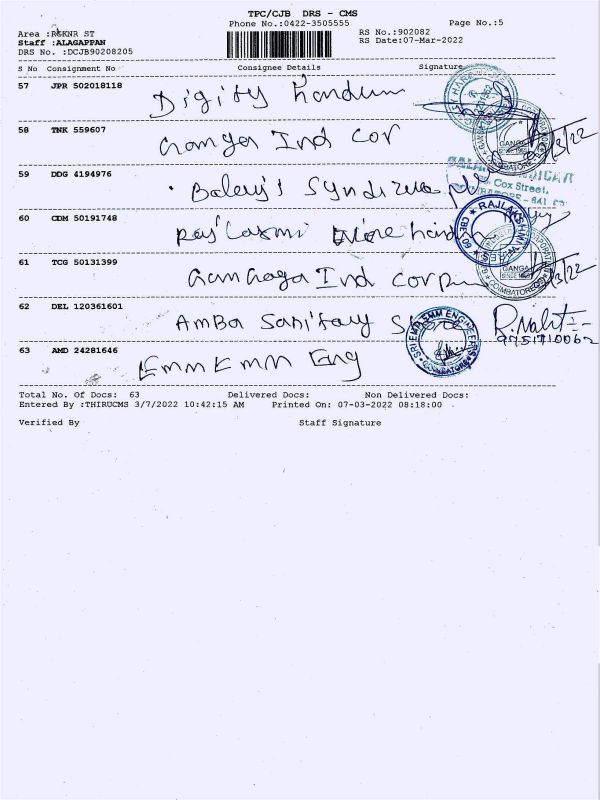 TPC/CJB DRS - CMS
Phone No.:0422-3505555
Page No.:5
Area :RGKNR ST
RS No.:902082
Staff :ALAGAPPAN
RS Date:07-Mar-2022
DRS No. :DCJB90208205
S No Consignment No Consignee Details Signature
57 JPR 502018118
Digity
58 TNK 559607 Ganga Ind Cor
GANGA
59 DDG 4194976
Cox Street,
60 CDM 50191748
RAJLAKSHMI
61 TCG 50131399
Ind corp
GANGA
COIMBATORE
62 DEL 120361601
AMBA Sanitary Store
SRI EMM SMM ENGINEERS
COIMBATORE
9751710062
63 AMD 24281646
Emm Emm Eng
Total No. Of Docs: 63 Delivered Docs: Non Delivered Docs:
Entered By :THIRUCMS 3/7/2022 10:42:15 AM Printed On: 07-03-2022 08:18:00
Verified By Staff Signature